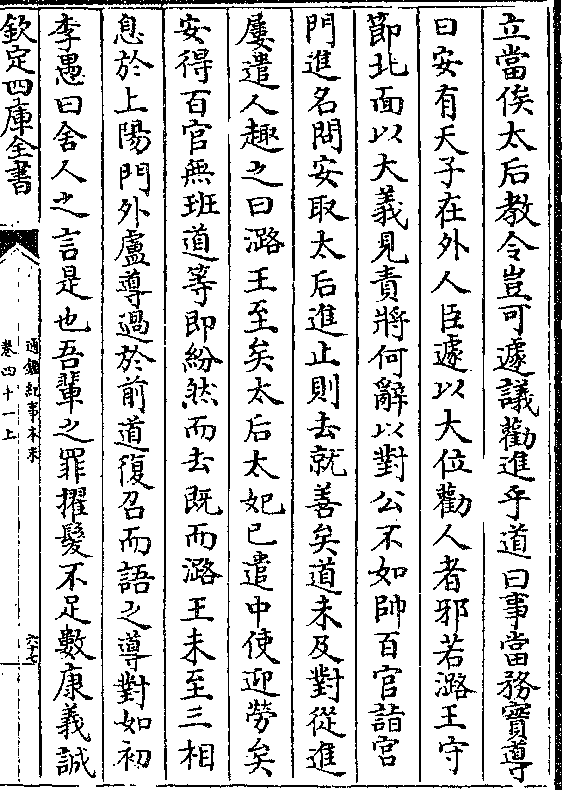 立當俟太后教令豈可遽議勸進乎道曰事當務實導
曰安有天子在外人臣遽以大位勸人者邪若潞王守
節北面以大義見責將何辭以對公不如帥百官詣宮
門進名問安取太后進止則去就善矣道未及對從進
屢遣人趣之曰潞王至矣太后太妃已遣中使迎勞矣
安得百官無班道等即紛然而去既而潞王未至三相
息於上陽門外盧導過於前道復召而語之導對如初
李愚曰舍人之言是也吾輩之罪擢髮不足數康義誠
欽定四庫全書
通鑑紀事本末
卷四十一上
六十七